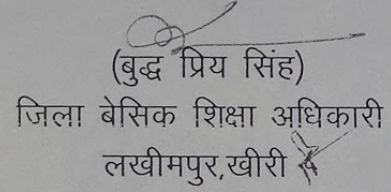 (बुद्ध प्रिय सिंह)
जिला बेसिक शिक्षा अधिकारी
लखीमपुर,खीरी